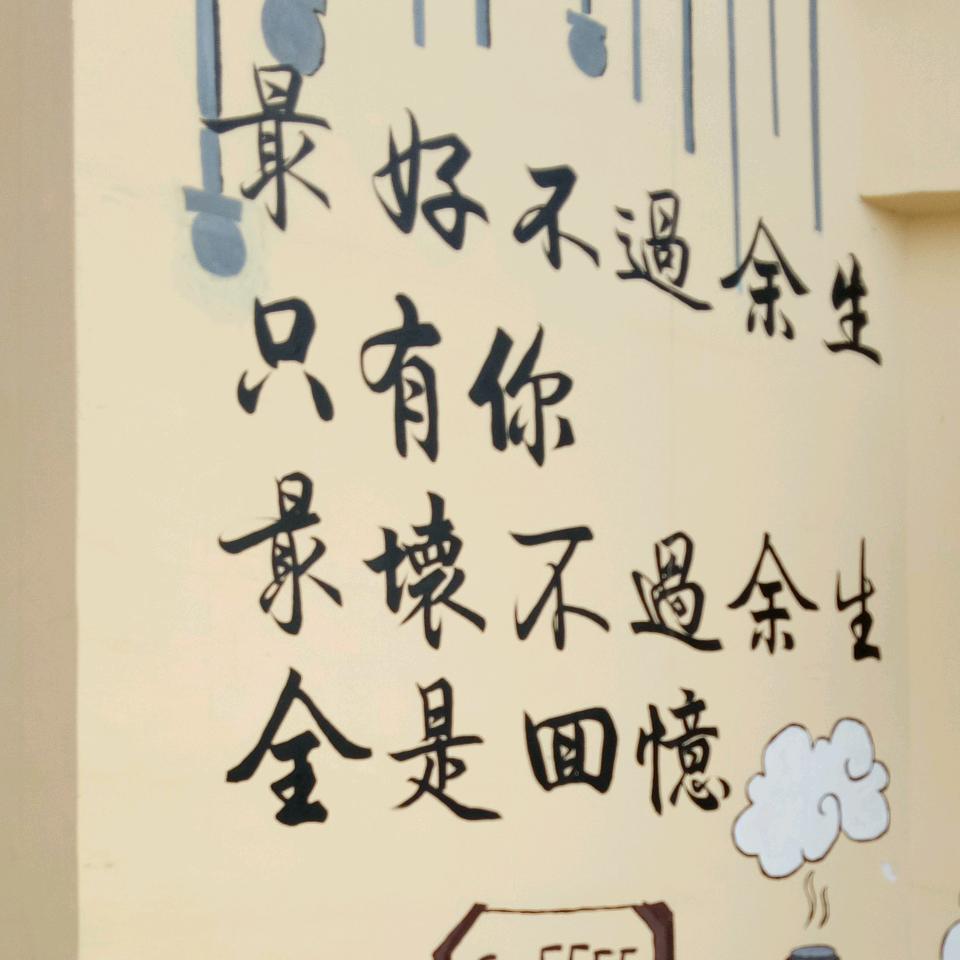 最好不過余生
只有你
最壞不過余生
全是回憶